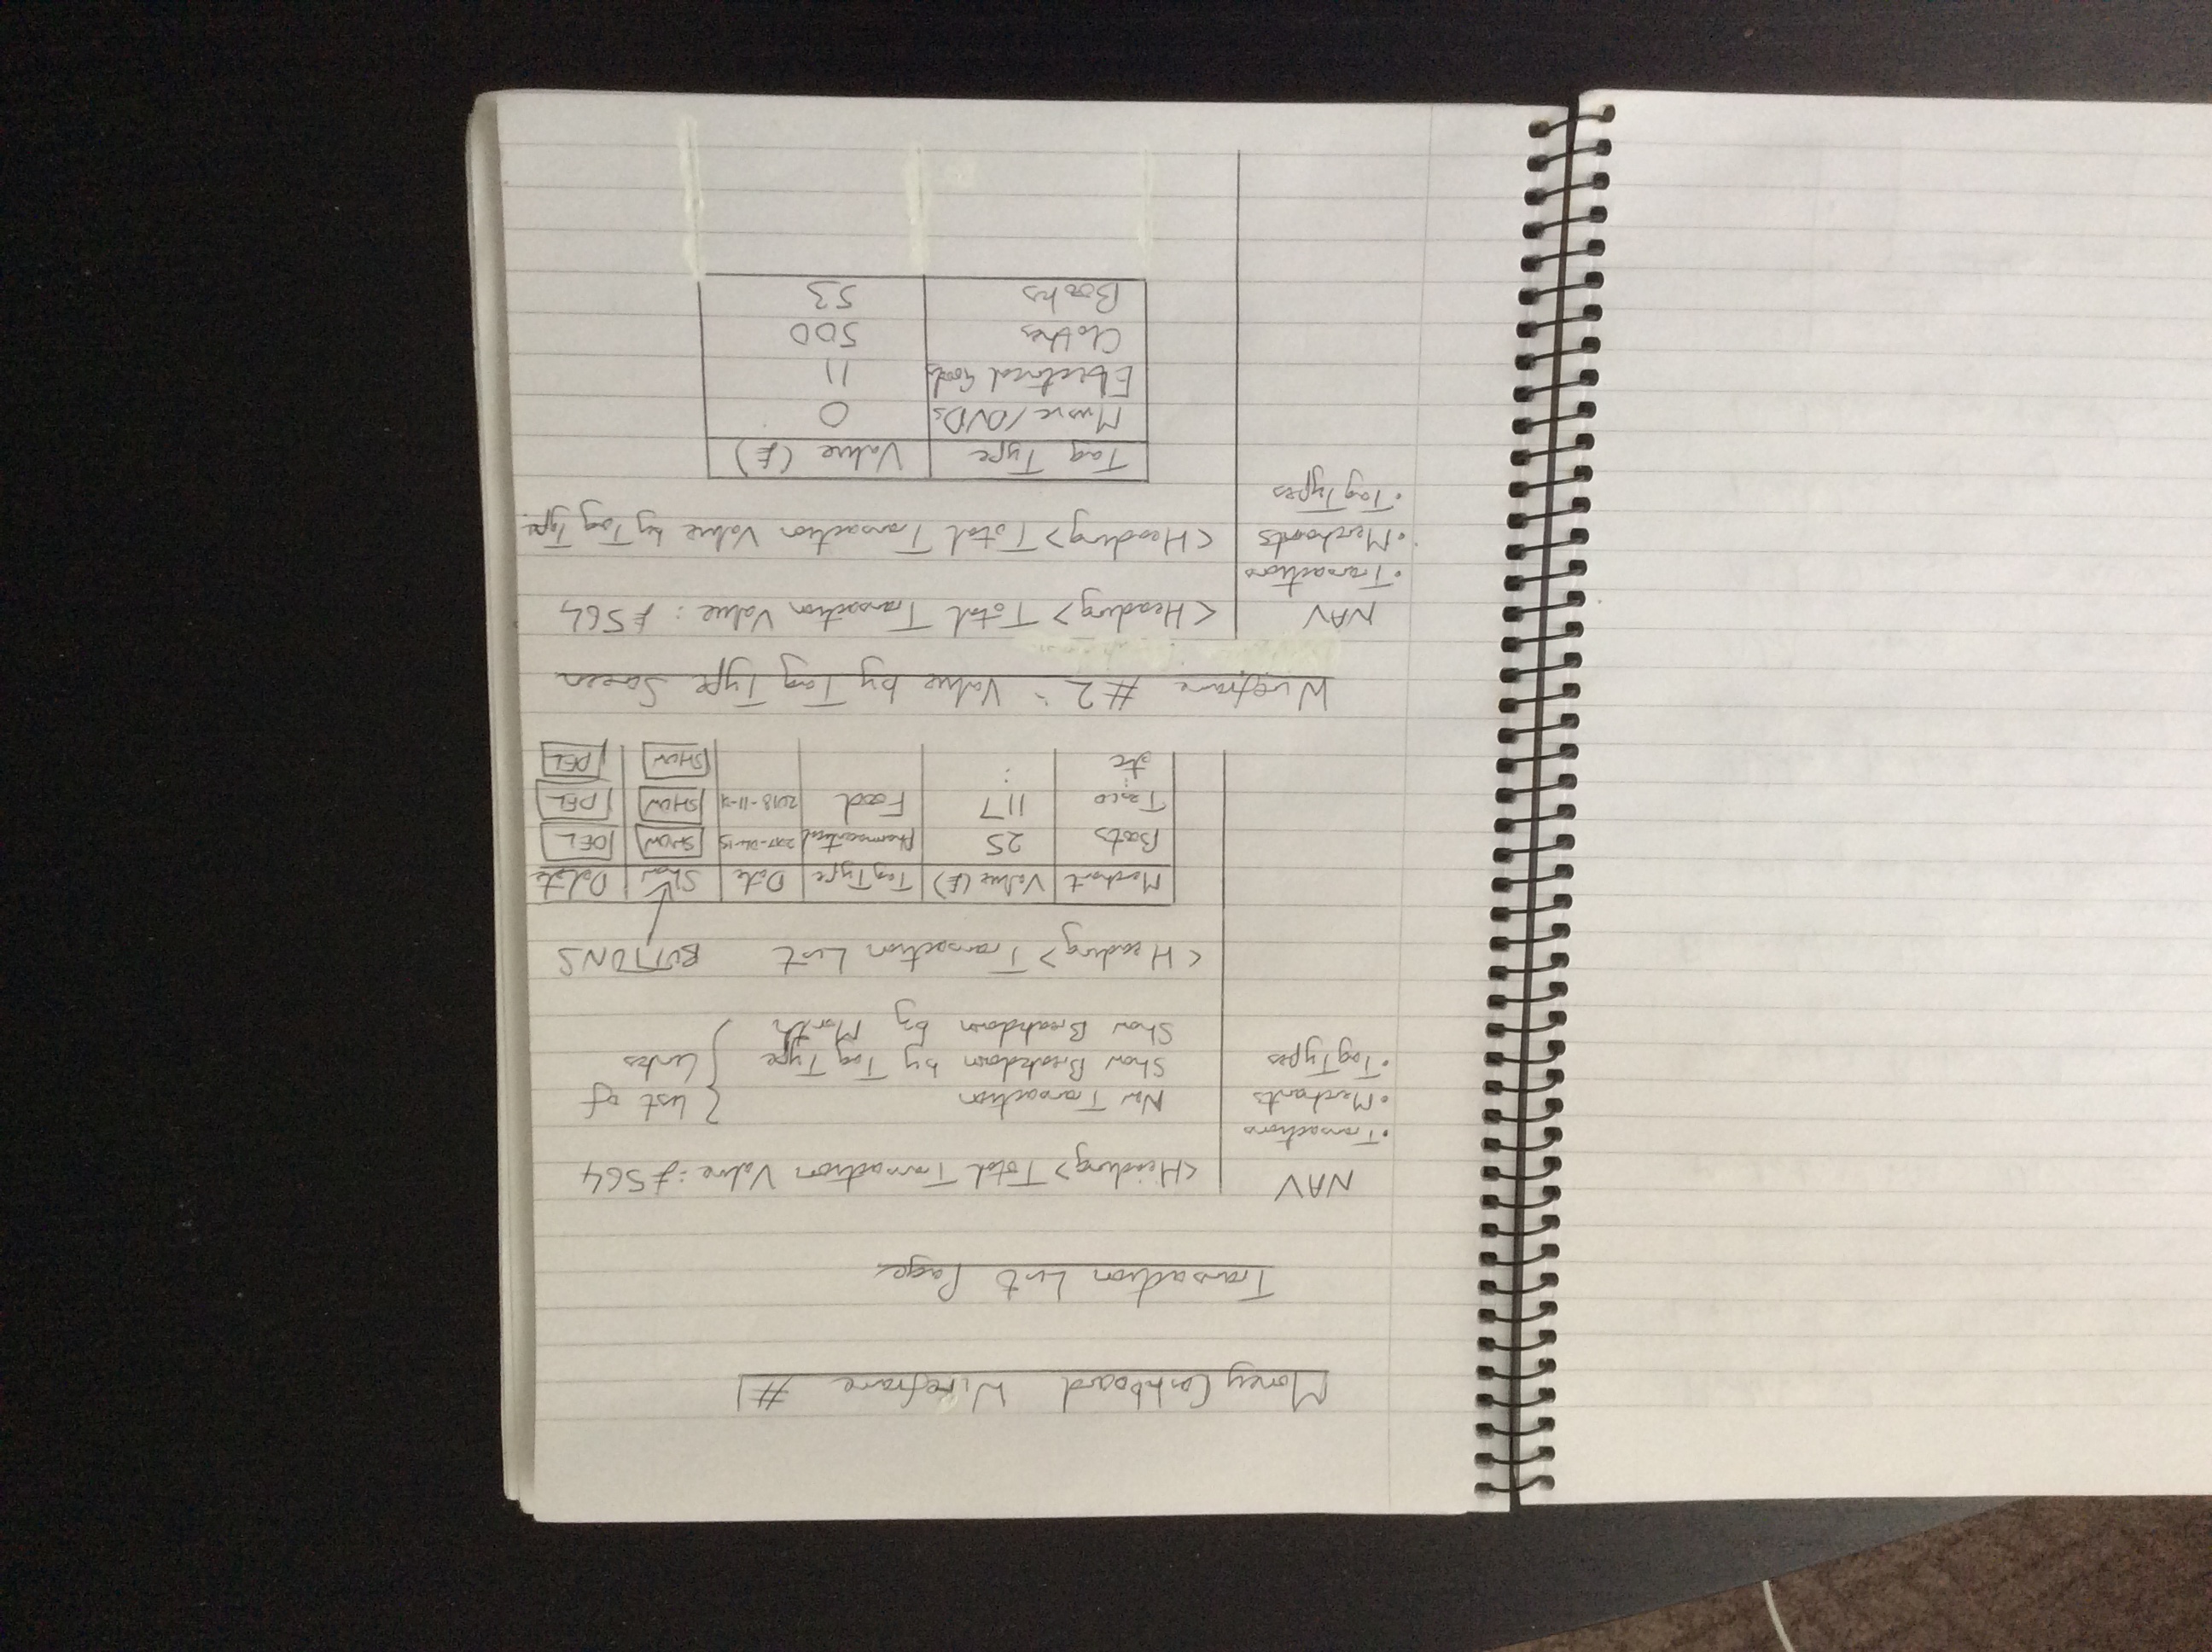 Money Cashboard Wireframe #1
Transaction List Page
NAV
• Transactions
• Merchants
• Tag Types
<Heading> Total Transaction Value : £564
New Transaction
Show Breakdown by Tag Type
Show Breakdown by Month
} list of
links
<Heading> Transaction List
BUTTONS
Merchant Value (£) Tag Type Date Show Delete
Boots 25 Pharmaceutical SHOW DEL
Tesco 117 Food SHOW DEL
etc : SHOW DEL
Wireframe #2 : Value by Tag Type Screen
NAV
• Transactions
• Merchants
• Tag Types
<Heading> Total Transaction Value : £564
<Heading> Total Transaction Value by Tag Type
Tag Type Value (£)
Music/DVDs 0
Electrical Goods 11
Clothes 500
Books 53